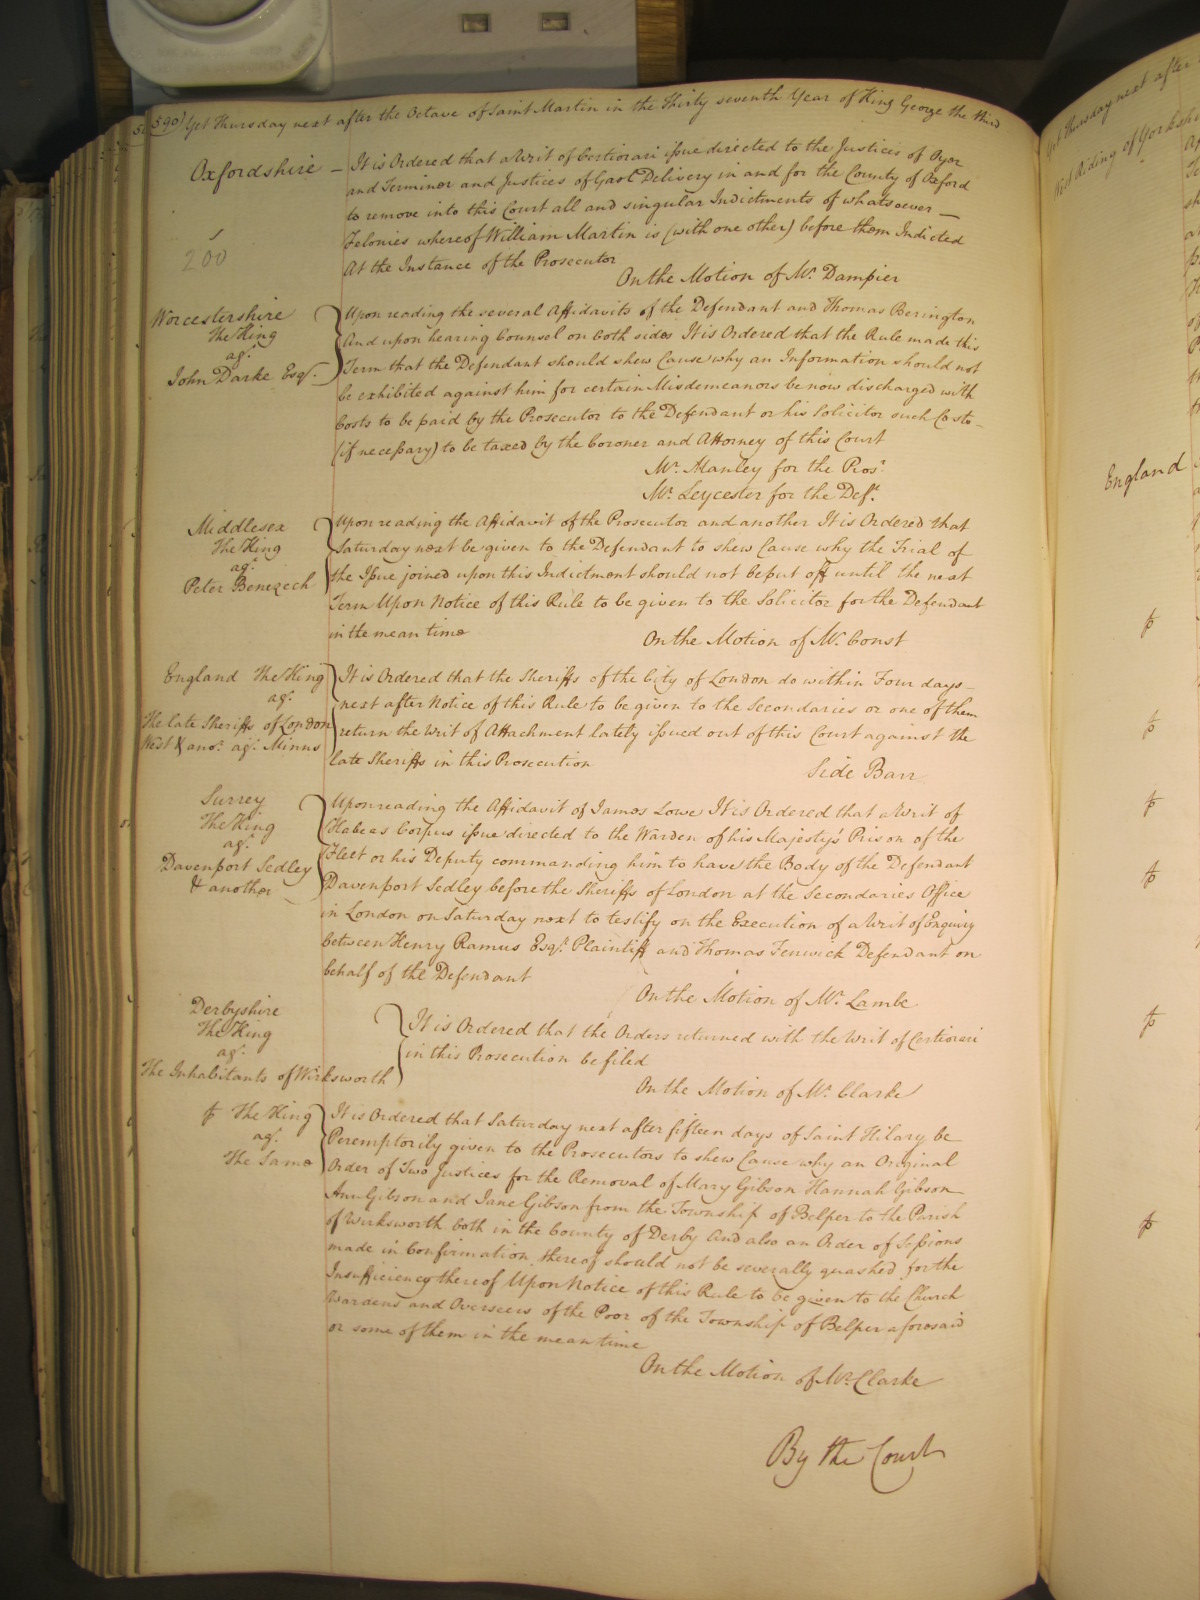 590) Yet Thursday next after the Octave of Saint Martin in the Thirty seventh Year of King George the third
Oxfordshire –
It is Ordered that a Writ of Certiorari issue directed to the Justices of Oyer
and Terminer and Justices of Gaol Delivery in and for the County of Oxford
to remove into this Court all and singular Indictments of whatsoever —
Felonies whereof William Martin is (with one other) before them Indicted
At the Instance of the Prosecutor
On the Motion of Mr. Dampier
200
Worcestershire
The King
agt.
John Darke Esqr.
Upon reading the several Affidavits of the Defendant and Thomas Berington
And upon hearing Counsel on both sides It is Ordered that the Rule made this
Term that the Defendant should shew Cause why an Information should not
be exhibited against him for certain Misdemeanors be now discharged with
Costs to be paid by the Prosecutor to the Defendant or his Solicitor such Costs –
(if necessary) to be taxed by the Coroner and Attorney of this Court
Mr. Manley for the Prosr.
Mr. Leycester for the Deft.
Middlesex
The King
agt.
Peter Benezech
Upon reading the Affidavit of the Prosecutor and another It is Ordered that
Saturday next be given to the Defendant to shew Cause why the Trial of
the Issue joined upon this Indictment should not be put off until the next
Term Upon Notice of this Rule to be given to the Solicitor for the Defendant
in the mean time
On the Motion of Mr. Const
England The King
agt.
The late Sheriffs of London
West & anor. agt. Minns
It is Ordered that the Sheriffs of the City of London do within Four days –
next after Notice of this Rule to be given to the Secondaries or one of them
return the Writ of Attachment lately issued out of this Court against the
late Sheriffs in this Prosecution
Side Barr
Surrey
The King
agt.
Davenport Sedley
& another
Upon reading the Affidavit of James Lowe It is Ordered that a Writ of
Habeas Corpus issue directed to the Warden of his Majesty's Prison of the
Fleet or his Deputy commanding him to have the Body of the Defendant
Davenport Sedley before the Sheriffs of London at the Secondaries Office
in London on Saturday next to testify on the Execution of a Writ of Enquiry
between Henry Ramus Esqr. Plaintiff and Thomas Fenwick Defendant on
behalf of the Defendant
On the Motion of Mr. Lambe
Derbyshire
The King
agt.
The Inhabitants of Wirksworth
It is Ordered that the Orders returned with the Writ of Certiorari
in this Prosecution be filed
On the Motion of Mr. Clarke
The King
agt.
The Same
It is Ordered that Saturday next after fifteen days of Saint Hilary be
Peremptorily given to the Prosecutors to shew Cause why an Original
Order of Two Justices for the Removal of Mary Gibson Hannah Gibson
Ann Gibson and Jane Gibson from the Township of Belper to the Parish
of Wirksworth both in the County of Derby And also an Order of Sessions
made in Confirmation thereof should not be severally quashed for the
Insufficiency thereof Upon Notice of this Rule to be given to the Church
Wardens and Overseers of the Poor of the Township of Belper aforesaid
or some of them in the mean time
On the Motion of Mr. Clarke
By the Court
Yet Thursday next after
West Riding of Yorkshire
England